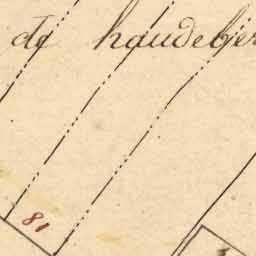 de haudeber
81